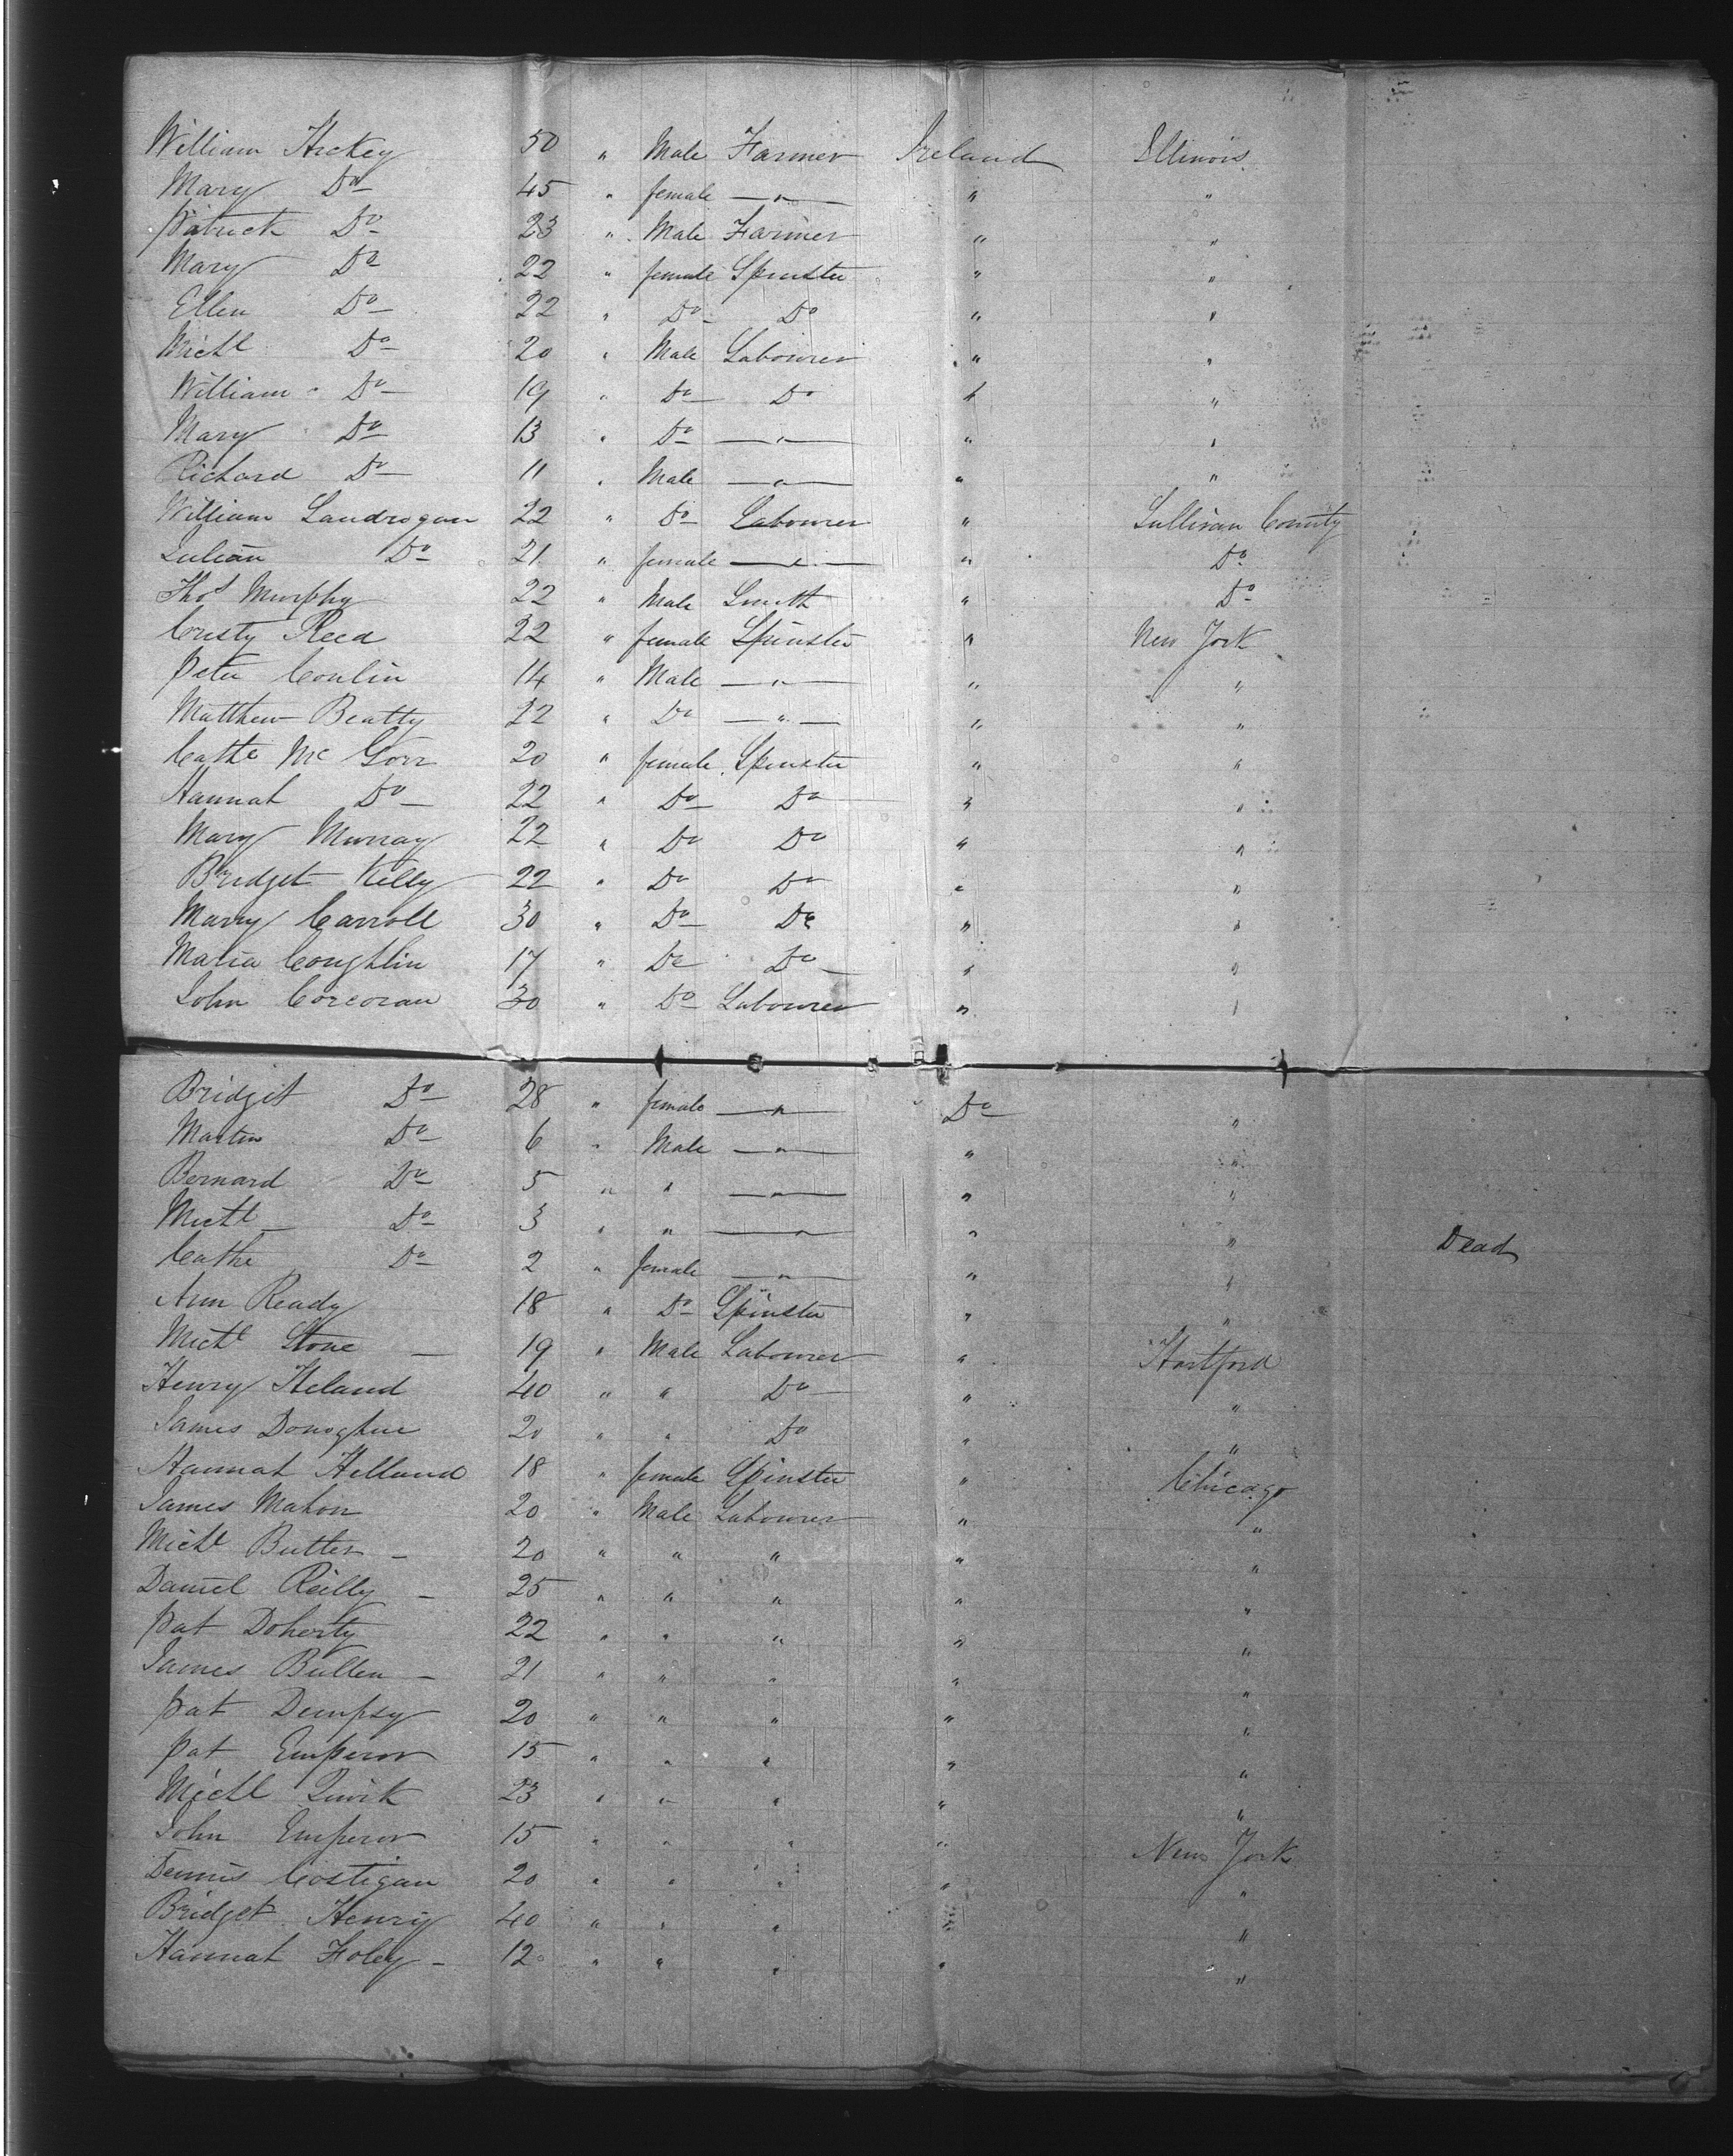 William Hickey 50 " Male Farmer Ireland Illinois
Mary Do 45 " female — " — " "
Patrick Do 23 " Male Farmer " "
Mary Do 22 " female Spinster " "
Ellen Do 22 " Do Do " "
Michl Do 20 " Male Labourer " "
William Do 19 " Do Do " "
Mary Do 13 " Do — " — " "
Richard Do 11 " Male — " — " "
William Landrogan 22 " Do Labourer " Sullivan County
Julian Do 21 " female — " — " Do
Thos Murphy 22 " Male Smith " Do
Cristy Reed 22 " female Spinster " New York
Peter Conlin 14 " Male — " — " "
Matthew Beatty 22 " Do — " — " "
Cathe Mc Gorr 20 " female Spinster " "
Hannah Do 22 " Do Do " "
Mary Murray 22 " Do Do " "
Bridget Kelly 22 " Do Do " "
Mary Carroll 30 " Do Do " "
Maria Coughlin 17 " Do Do " "
John Corcoran 30 " Do Labourer " "
Bridget Do 28 " female — " — Do "
Martin Do 6 " Male — " — " "
Bernard Do 5 " " — " — " "
Michl Do 3 " " — " — " " Dead
Cathe Do 2 " female — " — " "
Ann Ready 18 " Do Spinster " "
Michl Stone 19 " Male Labourer " Hartford
Henry Heland 40 " " Do " "
James Donoghue 20 " " Do " "
Hannah Helland 18 " female Spinster " Chicago
James Mahon 20 " Male Labourer " "
Michl Butler 20 " " " " "
Daniel Reilly 25 " " " " "
Pat Doherty 22 " " " " "
James Bullen 21 " " " " "
Pat Dempsy 20 " " " " "
Pat Emperor 15 " " " " "
Michl Quirk 23 " " " " "
John Emperor 15 " " " " New York
Dennis Costigan 20 " " " " "
Bridget Henry 40 " " " " "
Hannah Foley 12 " " " " "